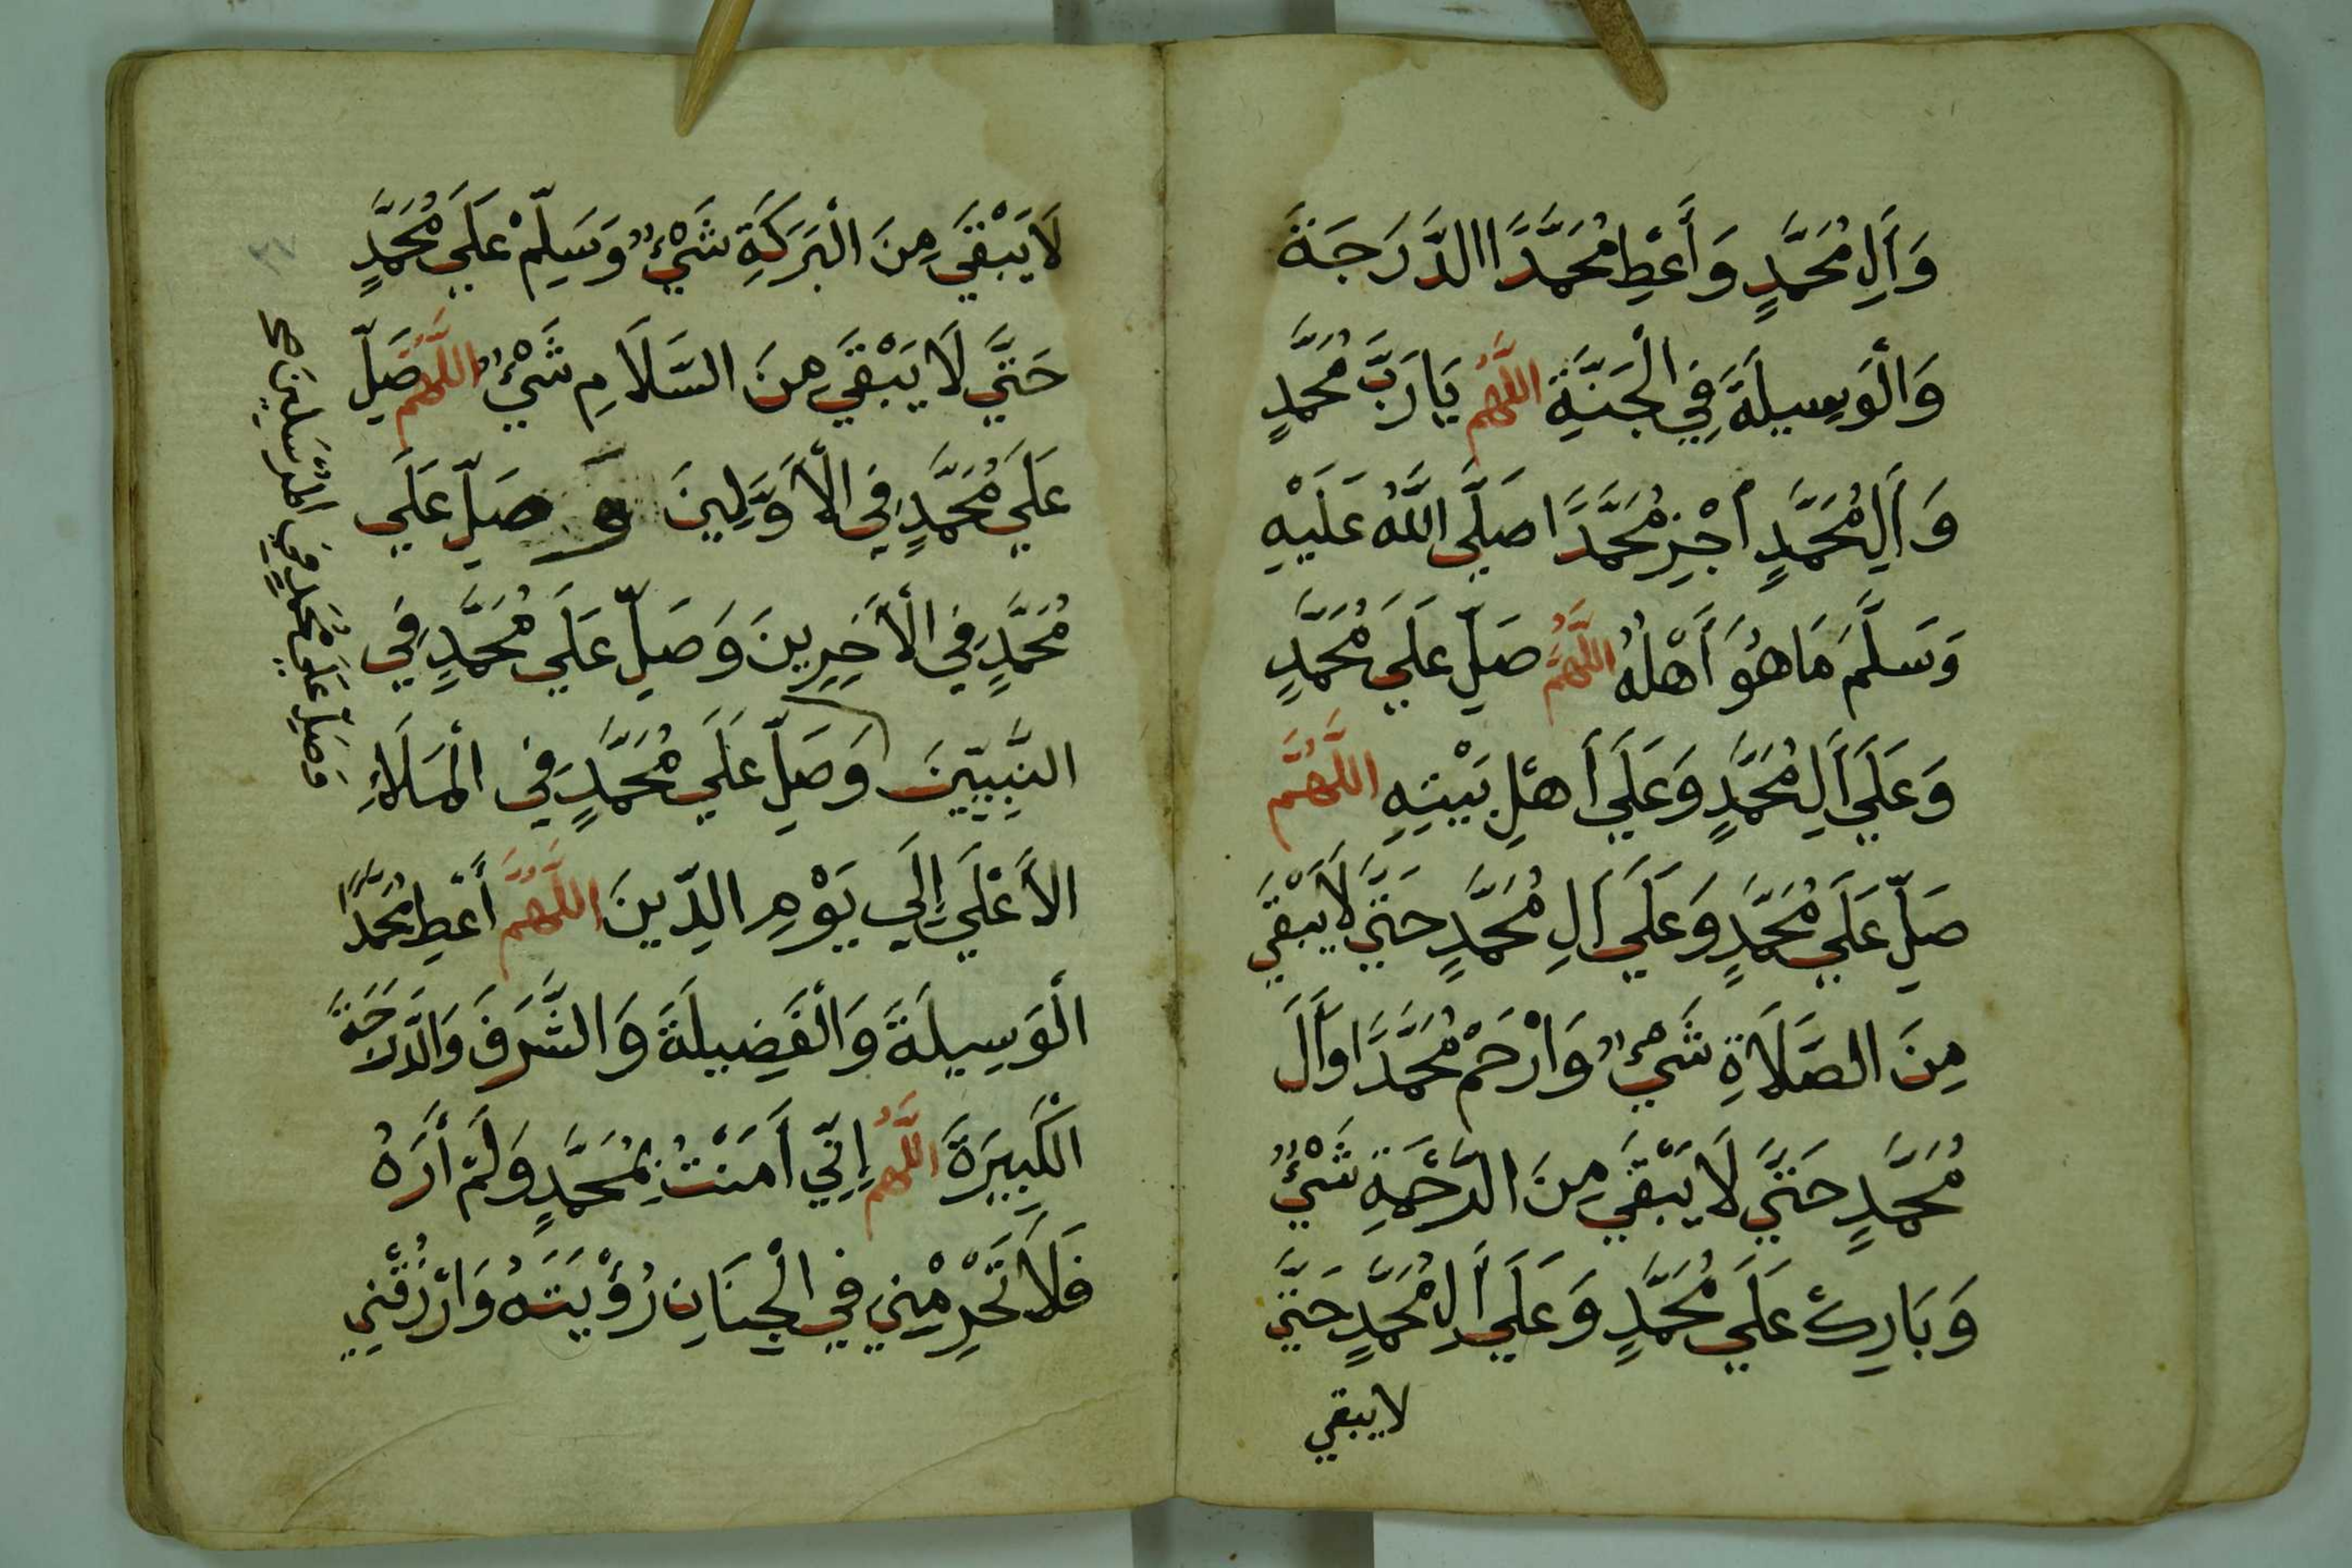 وَأَلِ مُحَمَّدٍ وَأَعْطِ مُحَمَّدًا االدَّرَجَةَ
وَالْوَسِيلَةَ فِي الْجَنَّةِ اللَّهُمَّ يَارَبَّ مُحَمَّدٍ
وَأَلِ مُحَمَّدٍ أجْزِ مُحَمَّدًا صَلَّى اللَّهُ عَلَيْهِ
وَسَلَّمَ مَاهُوَ أَهْلُهُ اللَّهُمَّ صَلِّ عَلَي مُحَمَّدٍ
وَعَلَي أَلِ مُحَمَّدٍ وَعَلَي أَهْلِ بَيْتِهِ اللَّهُمَّ
صَلِّ عَلَي مُحَمَّدٍ وَعَلَي أَلِ مُحَمَّدٍ حَتَّي لَا يَبْقَي
مِنَ الصَّلَاةِ شَيْءٌ وَارْحَمْ مُحَمَّدًا وَأَلَ
مُحَمَّدٍ حَتَّي لَا يَبْقَي مِنَ الرَّحْمَةِ شَيْءٌ
وَبَارِكْ عَلَي مُحَمَّدٍ وَعَلَي أَلِ مُحَمَّدٍ حَتَّي
لايبقي
لَا يَبْقَي مِنَ الْبَرَكَةِ شَيْءٌ وَسَلِّمْ عَلَي مُحَمَّدٍ
حَتَّي لَا يَبْقَي مِنَ السَّلَامِ شَيْءٌ اللَّهُمَّ صَلِّ
عَلَي مُحَمَّدٍ فِي الْأَوَّلِينَ وَ صَلِّ عَلَي
مُحَمَّدٍ فِي الْأَخِرِينَ وَصَلِّ عَلَي مُحَمَّدٍ فِي
النَّبِيِّينَ وَصَلِّ عَلَي مُحَمَّدٍ فِي الْمَلَاءِ
الأَعْلَي إِلَي يَوْمِ الدِّينَ اللَّهُمَّ أَعْطِ مُحَمَّدًا
الْوَسِيلَةَ وَالْفَضِيلَةَ وَالشَّرَفَ وَالدَّرَجَةَ
الْكَبِيرَةَ اللَّهُمَّ إِنِّي أَمَنْتُ بِمُحَمَّدٍ وَلَمْ أَرَهُ
فَلَا تَحْرِمْنِي فِي الْجِنَانِ رُؤْيَتَهُ وَارْزُقْنِي
وَصَلِّ عَلَي مُحَمَّدٍ فِي الْمُرْسَلِينَ صح